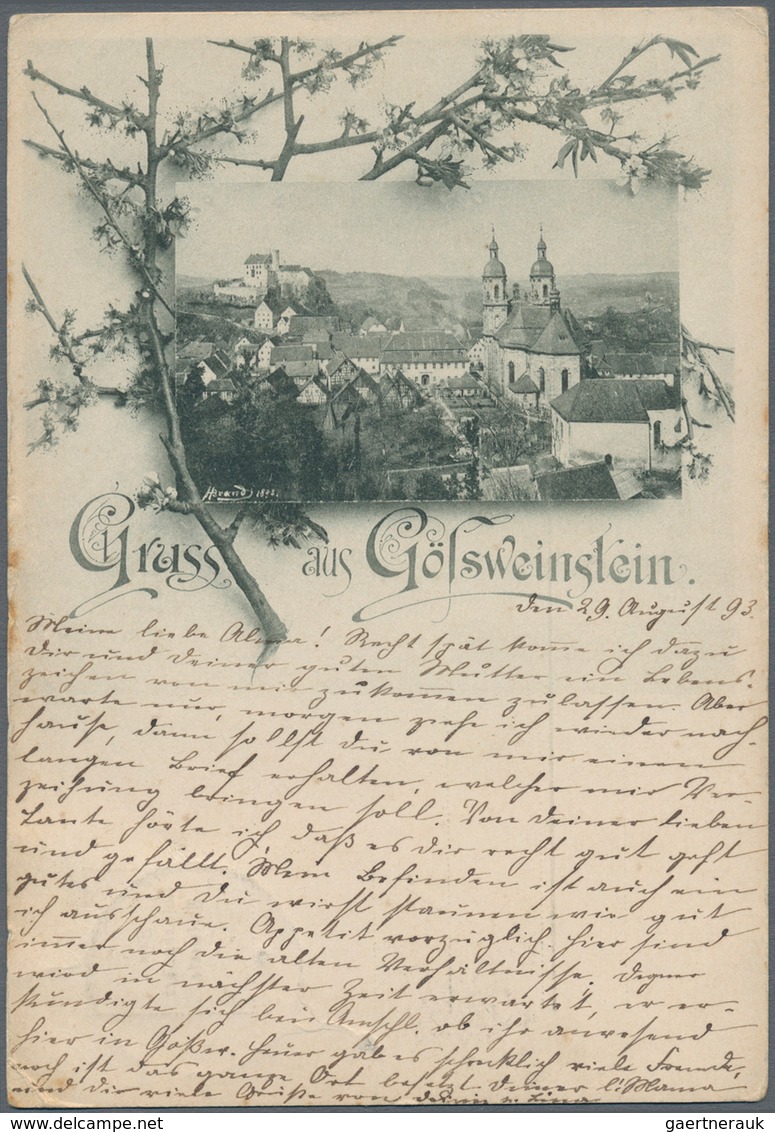 Herand 1893.
Gruss aus Gössweinstein.
den 29. August 93.
Meine liebe Alma! Recht spät komme ich dazu
Dir und deiner guten Mutter ein Lebens-
zeichen von mir zukommen zu lassen. Aber
warte nur, morgen ziehe ich wieder nach-
hause, dann sollst du von mir einen
langen Brief erhalten, welcher mir Ver-
zeihung bringen soll. Von deiner lieben
Tante hörte ich, daß es dir recht gut geht
und gefällt. Mein Befinden ist auch ein
gutes und du wirst staunen wie gut
ich ausschaue. Appetit vorzüglich. Hier sind
immer noch die alten Verhältnisse.
wird in nächster Zeit erwartet, er er-
kundigte sich bei ob ihr anwesend
hier in Gößw. Heuer gab es schrecklich viele Fremde,
noch ist das ganze Ort besetzt. Deiner l. Mama
und dir viele Grüße von
gaertnerauk